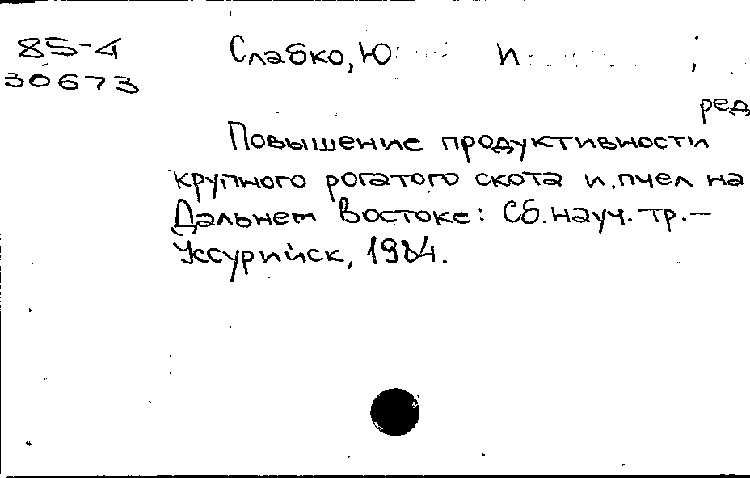 85-4
30673
Слабко, Ю И ,
ред
Повышение продуктивности
крупного рогатого скота и пчел на
Дальнем Востоке: Сб. науч. тр.–
Уссурийск, 1984.